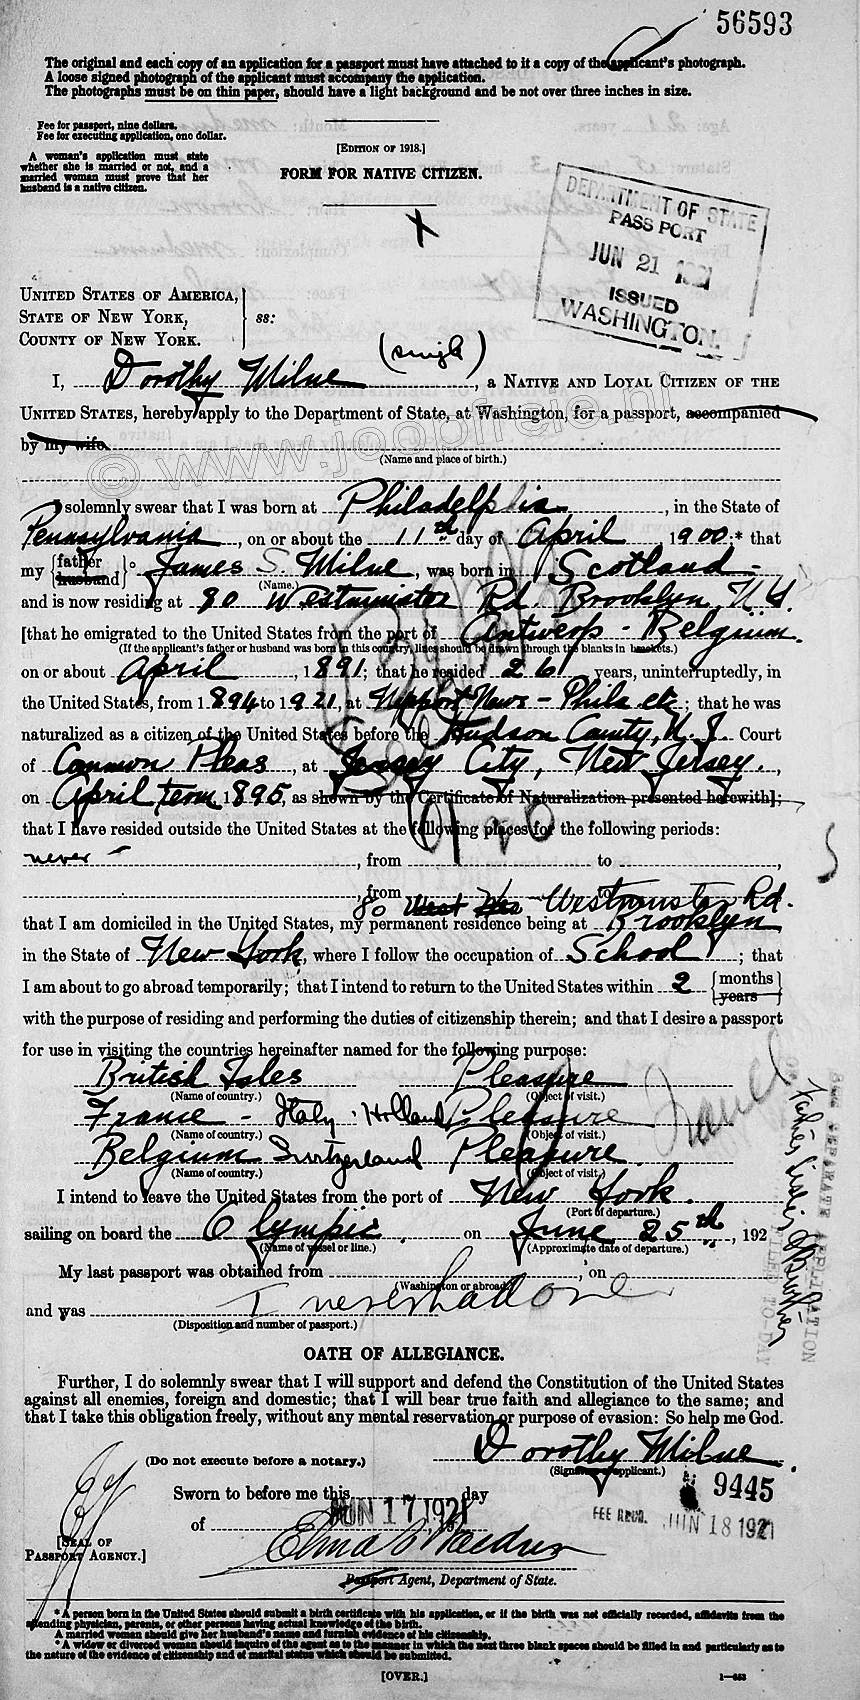 56593
The original and each copy of an application for a passport must have attached to it a copy of the applicant's photograph.
A loose signed photograph of the applicant must accompany the application.
The photographs must be on thin paper, should have a light background and be not over three inches in size.
Fee for passport, nine dollars.
Fee for executing application, one dollar.
[EDITION OF 1918.]
A woman's application must state
whether she is married or not, and a
married woman must prove that her
husband is a native citizen.
FORM FOR NATIVE CITIZEN.
DEPARTMENT OF STATE
PASSPORT
JUN 21 1921
ISSUED
WASHINGTON.
UNITED STATES OF AMERICA,
STATE OF NEW YORK,
COUNTY OF NEW YORK.
ss:
(single)
I, Dorothy Milne, a NATIVE AND LOYAL CITIZEN OF THE
UNITED STATES, hereby apply to the Department of State, at Washington, for a passport, accompanied
by my wife.
(Name and place of birth.)
© www.joopfreie.nl
I solemnly swear that I was born at Philadelphia, in the State of
Pennsylvania, on or about the 11th day of April, 1900;* that
my {father husband}° James S. Milne, was born in Scotland
(Name.)
and is now residing at 80 Westminister Rd. Brooklyn, N.Y.
[that he emigrated to the United States from the port of Antwerp - Belgium.
(If the applicant's father or husband was born in this country, lines should be drawn through the blanks in brackets.)
on or about April, 1891; that he resided 26 years, uninterruptedly, in
the United States, from 1894 to 1921, at Newport News - Phila etc; that he was
naturalized as a citizen of the United States before the Hudson County, N.J. Court
of Common Pleas, at Jersey City, New Jersey.,
on April term 1895, as shown by the Certificate of Naturalization presented herewith];
that I have resided outside the United States at the following places for the following periods:
never, from to,
, from to
80 West Wes Westminster Rd.
that I am domiciled in the United States, my permanent residence being at Brooklyn
in the State of New York, where I follow the occupation of School; that
I am about to go abroad temporarily; that I intend to return to the United States within 2 {months years
with the purpose of residing and performing the duties of citizenship therein; and that I desire a passport
for use in visiting the countries hereinafter named for the following purpose:
British Isles Pleasure
(Name of country.) (Object of visit.)
France - Italy Holland Pleasure
(Name of country.) (Object of visit.)
Belgium Switzerland Pleasure
(Name of country.) (Object of visit.)
Travel
SEE SEPARATE APPLICATION
OF
FILED TO-DAY
I intend to leave the United States from the port of New York.
(Port of departure.)
sailing on board the Olympic on June 25th, 192
(Name of vessel or line.) (Approximate date of departure.)
My last passport was obtained from, on
(Washington or abroad)
and was I never had one
(Disposition and number of passport.)
OATH OF ALLEGIANCE.
Further, I do solemnly swear that I will support and defend the Constitution of the United States
against all enemies, foreign and domestic; that I will bear true faith and allegiance to the same; and
that I take this obligation freely, without any mental reservation or purpose of evasion: So help me God.
Dorothy Milne.
(Do not execute before a notary.)
(Signature of applicant.)
9445
Sworn to before me this day
JUN 17 1921
of, 19
FEE RECD. JUN 18 1921
[SEAL OF
PASSPORT AGENCY.]
Passport Agent, Department of State.
* A person born in the United States should submit a birth certificate with his application, or if the birth was not officially recorded, affidavits from the
attending physician, parents, or other persons having actual knowledge of the birth.
A married woman should give her husband's name and furnish evidence of his citizenship.
° A widow or divorced woman should inquire of the agent as to the manner in which the next three blank spaces should be filled in and particularly as to
the nature of the evidence of citizenship and of marital status which should be submitted.
[OVER.]